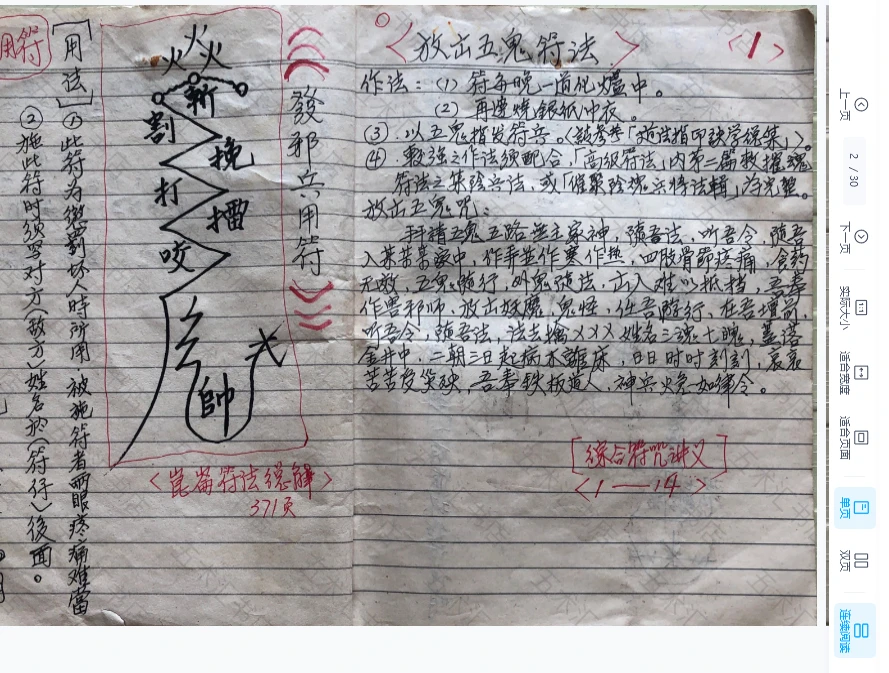 放出五鬼符法
<1>
作法：(1) 符每晚一道化爐中。
(2) 再遭燒銀紙冲衣。
③ 以五鬼指发符音。
④ 較強之作法須配合，「高級符法」内第二篇救摧魂
符法之集陰兵法，或「催聚陰魂兵特法輯」为完整。
放出五鬼咒：
拜請五鬼五路 主家神，隨吾法，听吾令，隨吾
入某苦某家中，作弄並作寒作热，四肢骨節疼痛，食药
无效，五鬼隨行，外鬼隨法，出入难以抵挡，吾奉
作害邪师，放出妖魔，鬼怪，任吾随行，在吾壇前，
听吾令，隨吾法，法去擒×××姓名三魂七魄，
金井中，二朝三日起病不離床，日日时时刻刻，哀哀
苦苦受 殃，吾奉铁板道人，神兵火急如律令。
[綜合符咒讲义]
<1——14>
發邪兵用符
火火火
斬
割
挽
打
擂
咬
帥
<崑崙符法總解>
371页
用符
[用法] ① 此符为懲罰坏人時所用，被施符者兩眼疼痛难當
② 施此符时须写对方(敌方)姓名於(符仔)後面。
上一页
2 / 30
下一页
实际大小
适合宽度
适合页面
单页
双页
连续阅读